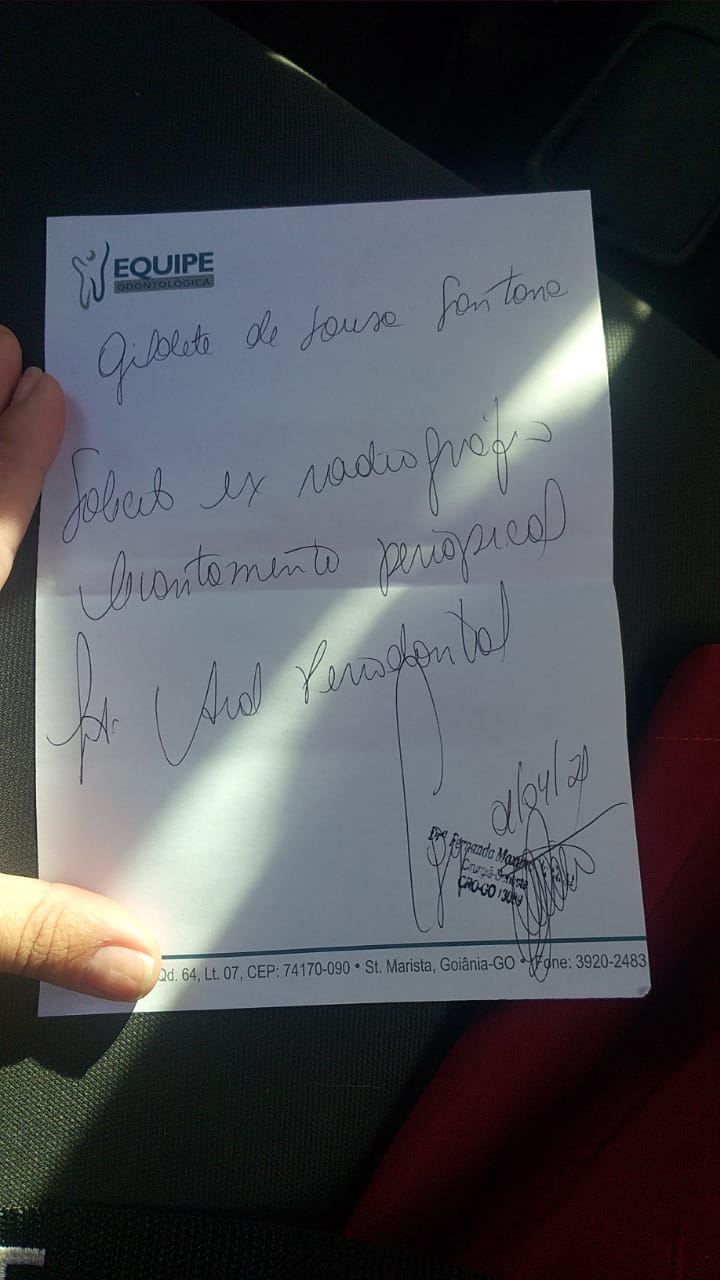 EQUIPE
ODONTOLÓGICA
Gildete de Sousa Santana
Solicito ex radiográfico
levantamento periapical
Aval Periodontal
/04/2
Drª Fernanda
Cirurgiã-Dentista
CRO-GO
Qd. 64, Lt. 07, CEP: 74170-090 • St. Marista, Goiânia-GO • Fone: 3920-2483